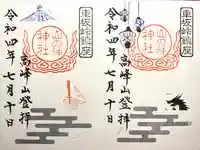 車坂峠鎮座
神社
高峰山登拝
令和四年七月十日
車坂峠鎮座
神社
高峰山登拝
令和四年七月十日